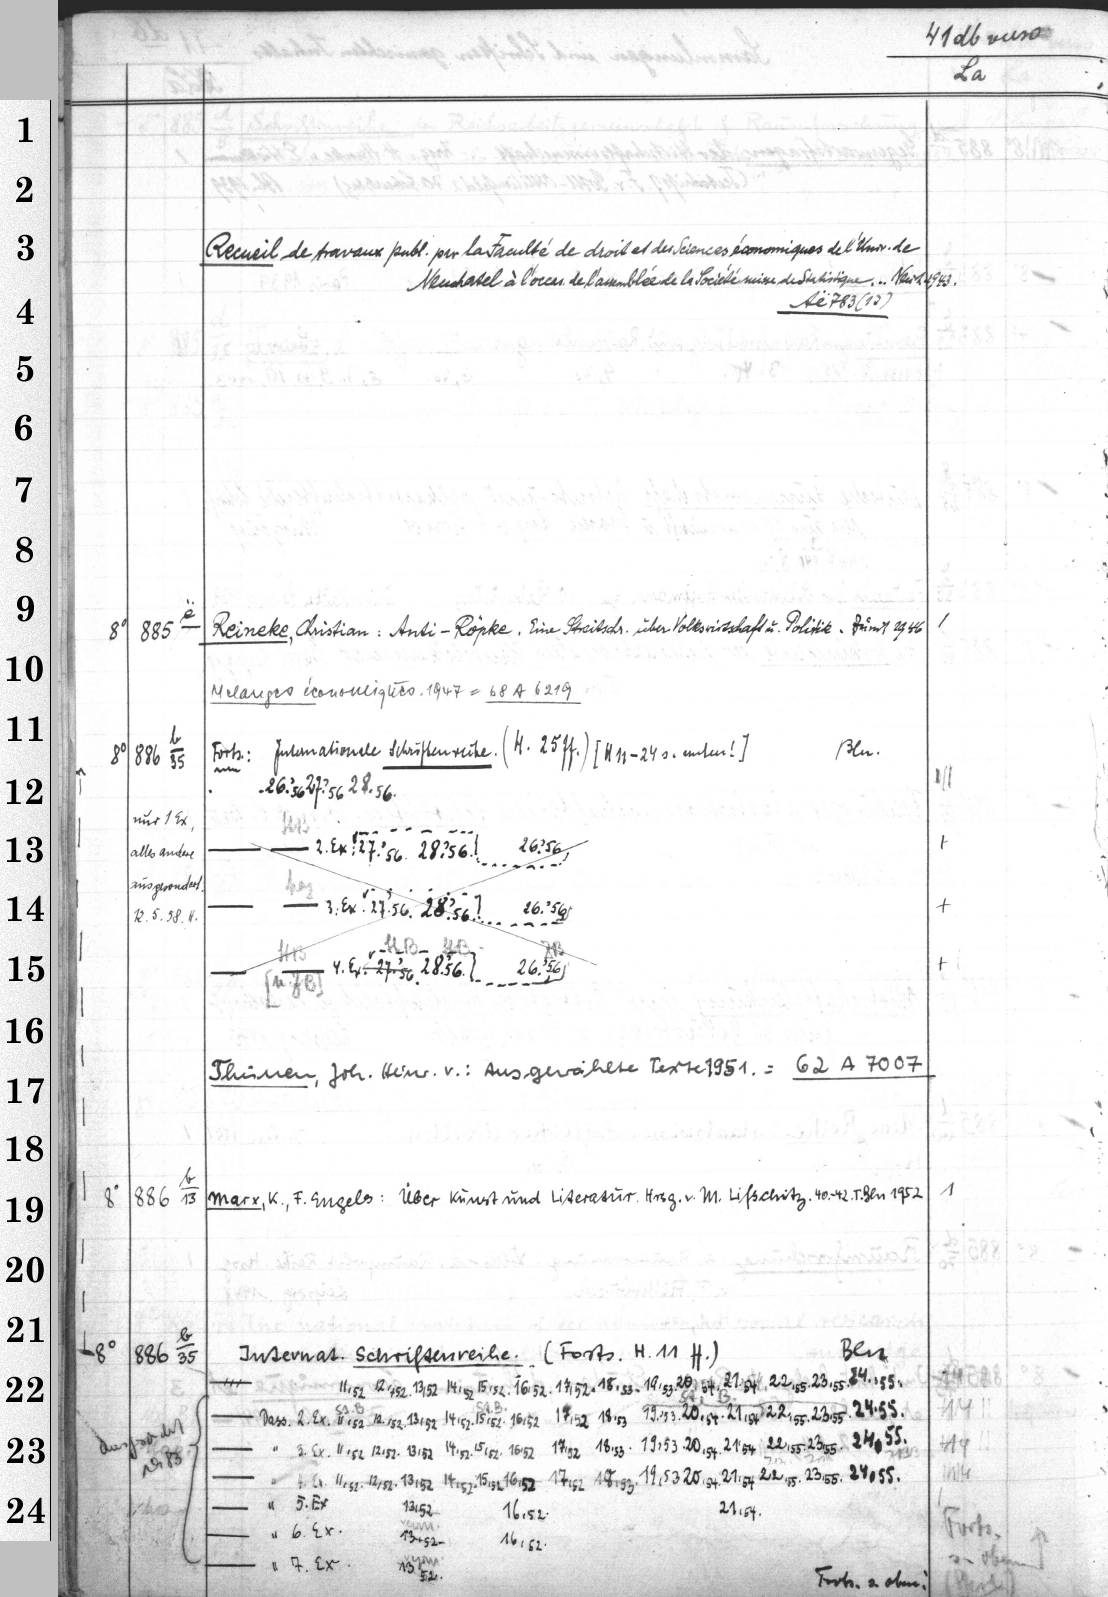 41db verso
La
1
2
3 Recueil de travaux publ. par la Faculté de droit et des Sciences économiques de l'Univ. de
Neuchatel à l'occas. de l'assemblée de la Société suisse de Statistique... Neuch. 1943.
4 Aë 783(13)
5
6
7
8
9
8° 885 ë Reineke, Christian: Anti-Röpke. Eine Streitschr. über Volkswirtschaft u. Politik. 1946 1
10
Mélanges économiques. 1947 = 68 A 6219
11
8° 886 b/35 Forts.: Internationale Schriftenreihe. (H. 25ff.) [H 11-24 s. unten!] Bln.
12 26.56 27.56 28.56.
nur 1 Ex,
13 2. Ex. 27.56. 28.56. 26.56 +
alles andere
ausgesondert.
14 3. Ex. 27.56. 28.56. 26.56 +
12.5.98. H.
15 4. Ex. 27.56. 28.56. 26.56 +
[u. JB]
16
17 Thünen, Joh. Heinr. v.: Ausgewählte Texte 1951. = 62 A 7007
18
19 8° 886 b/13 Marx, K., F. Engels: Über Kunst und Literatur. Hrsg. v. M. Lifschitz. 40.-42. T. Bln 1952 1
20
21
8° 886 b/35 Internat. Schriftenreihe. (Forts. H. 11 ff.) Bln
22 11,52 12,52 13,52 14,52 15,52 16,52 17,52 18,53 19,53 20,54 21,54 22,55 23,55 24,55.
Dass. 2. Ex. 11,52 12,52 13,52 14,52 15,52 16,52 17,52 18,53 19,53 20,54 21,54 22,55 23,55 24,55.
23 " 3. Ex. 11,52 12,52 13,52 14,52 15,52 16,52 17,52 18,53 19,53 20,54 21,54 22,55 23,55 24,55.
" 4. Ex. 11,52 12,52 13,52 14,52 15,52 16,52 17,52 18,53 19,53 20,54 21,54 22,55 23,55 24,55.
24 " 5. Ex 13,52 16,52 21,54.
" 6. Ex. 13,52 16,52.
" 7. Ex. 13,52.
Forts. s. oben!